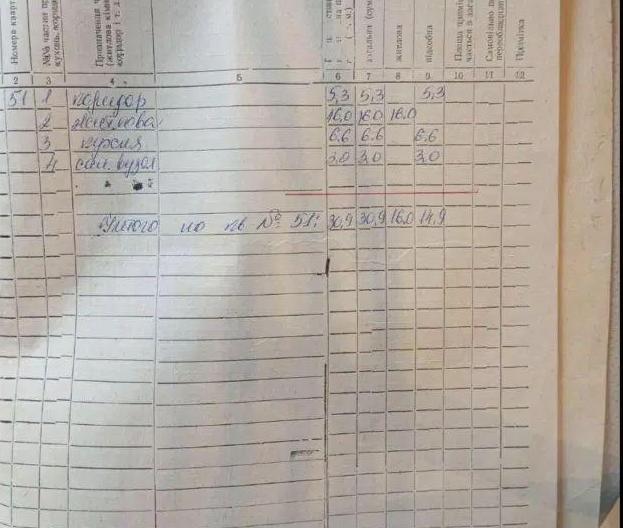 Номера кварт
№№ частин пр
кухань, корид
Призначення ч
(житлова кімн
коридор і т. д.
загальна (сум
житлова
підсобна
Площа приміщ
чається в зага
Самовільно п
переобладнан
Примітка
2 3 4 5 6 7 8 9 10 11 12
51 1 коридор 5,3 5,3 5,3
2 житлова 16,0 16,0 16.0
3 кухня 6.6 6.6 6.6
4 сан. вузол 3,0 3,0 3,0
Итого по кв № 51: 30,9 30,9 16.0 14,9